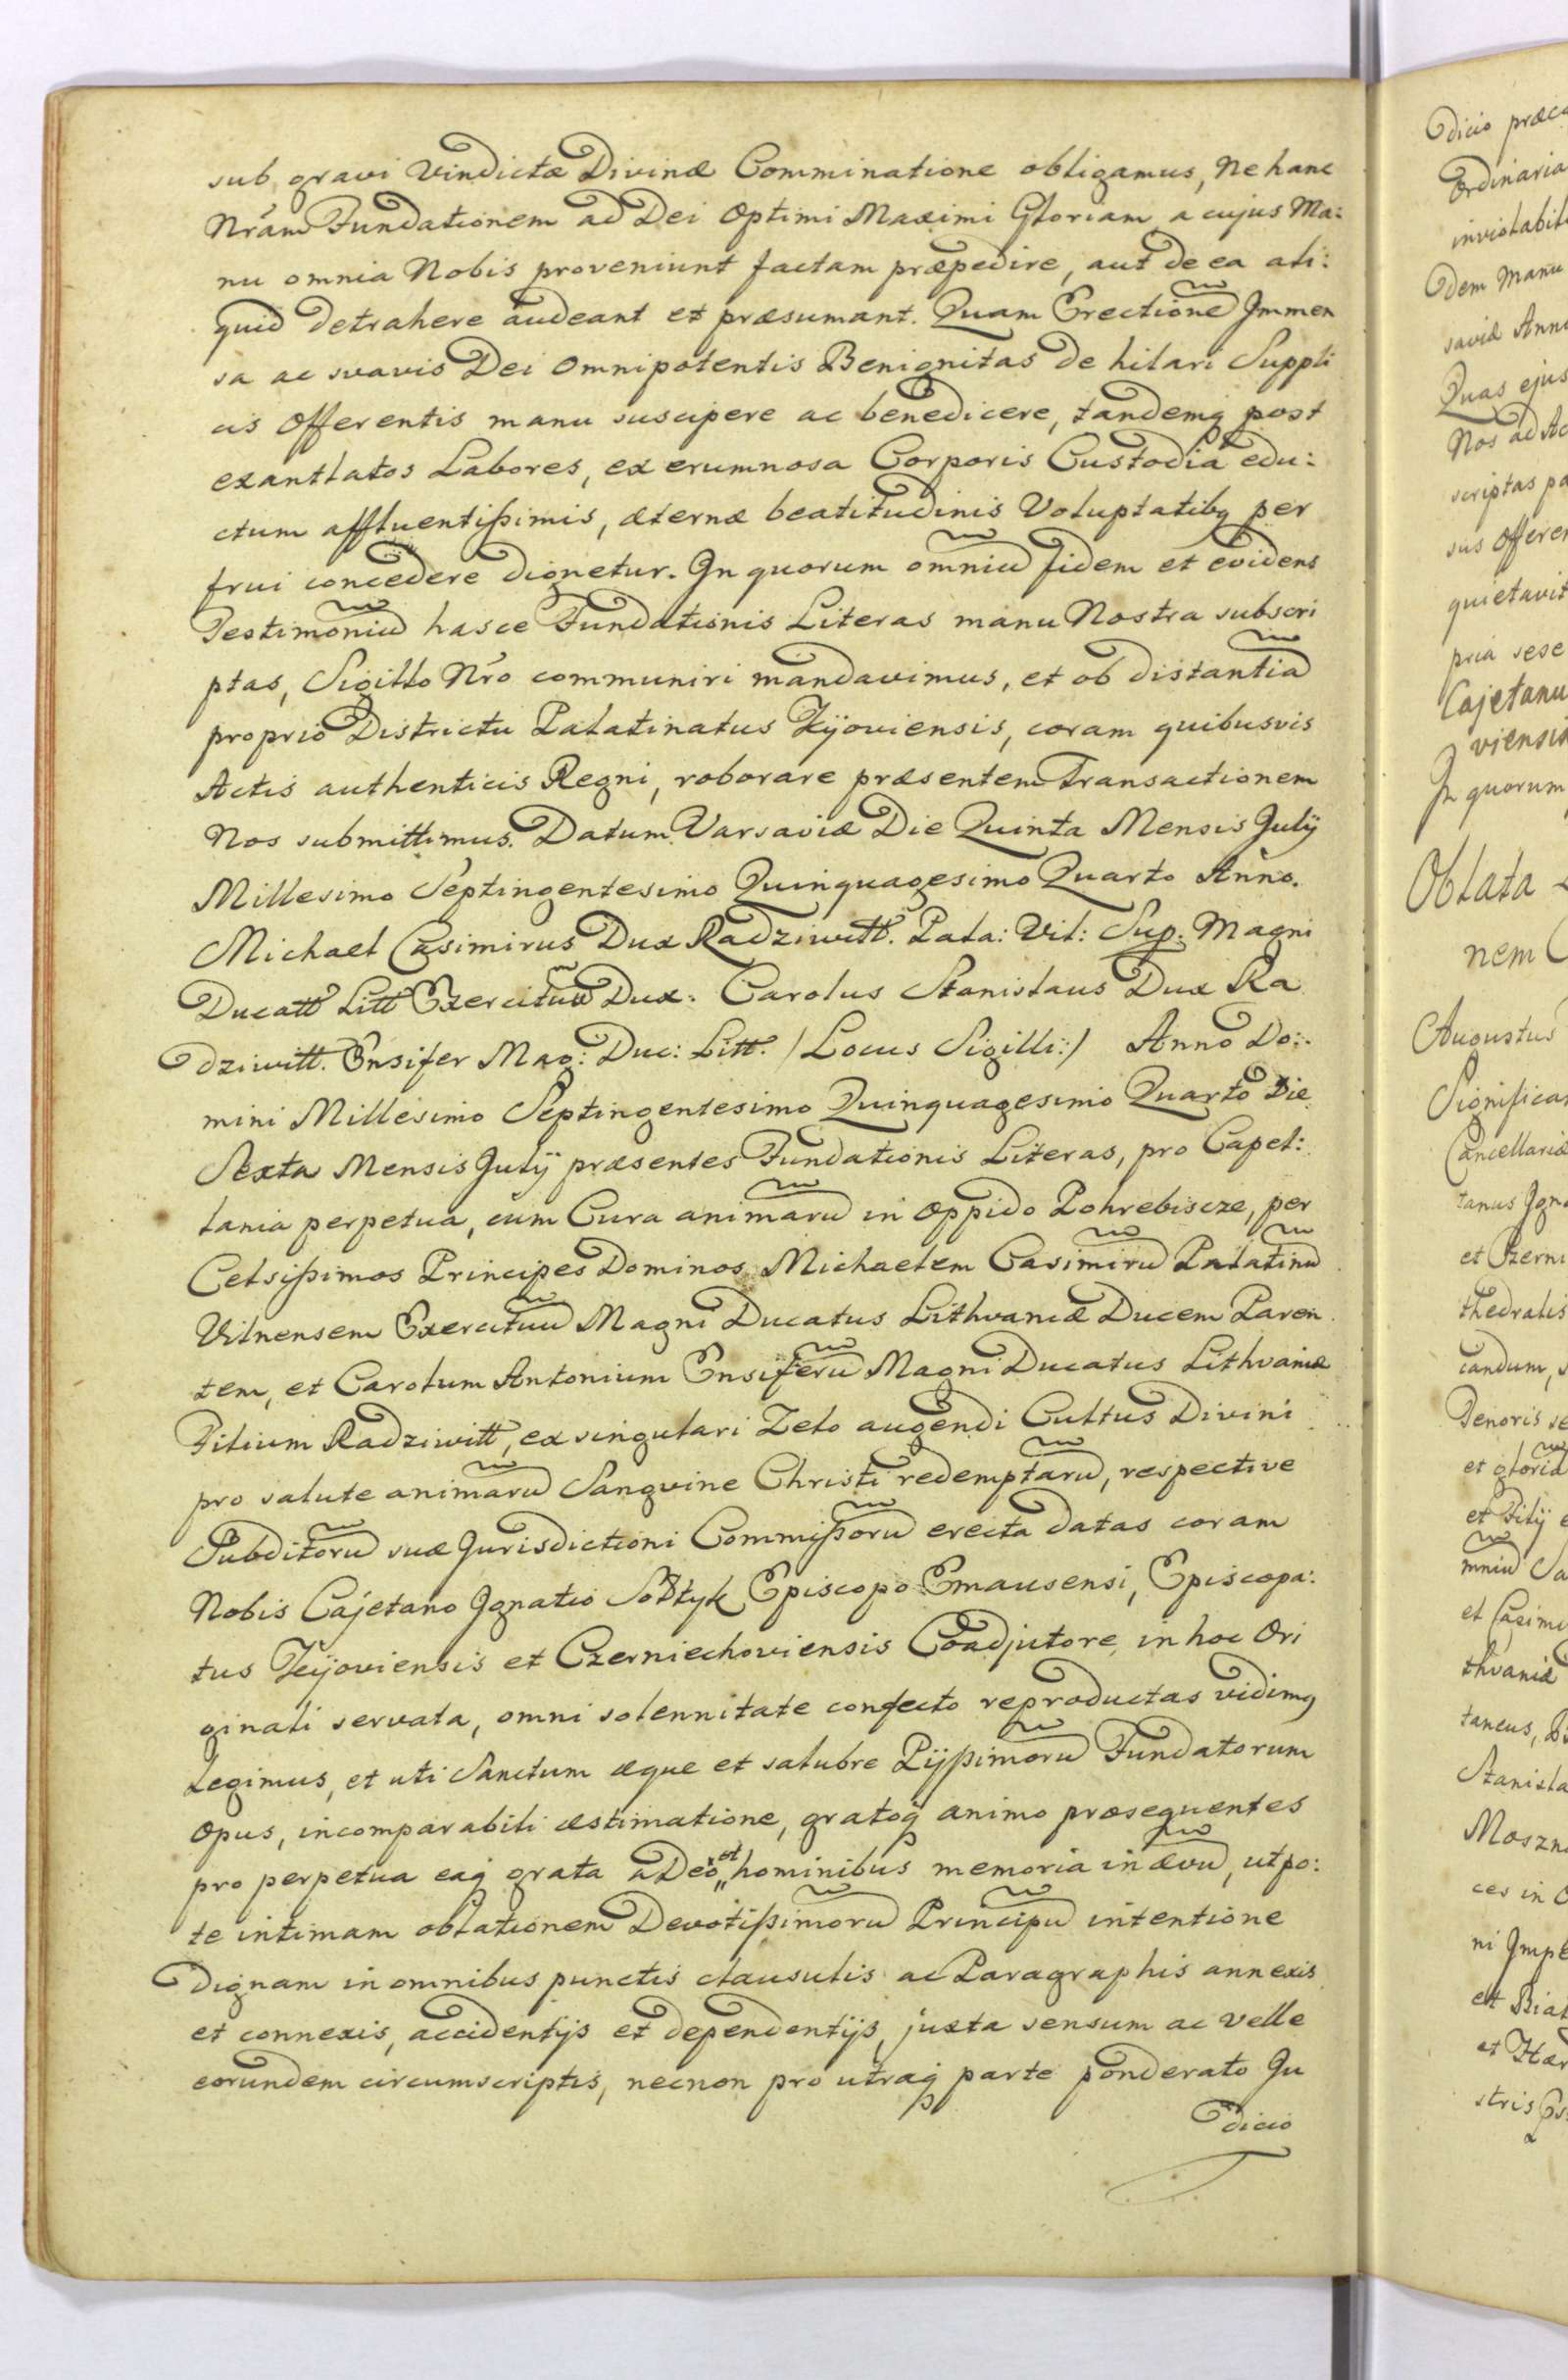 sub gravi Vindictæ Divinæ Comminatione obligamus, Ne hanc
Nr̃am Fundationem ad Dei Optimi Maximi Gloriam a cujus Ma:
nu omnia Nobis proveniunt factam præpedire, aut de ea ali:
quid detrahere audeant et præsumant. Quam Erectionẽ Immen
sa ac svavis Dei Omnipotentis Benignitas de hilari Suppli
cis Offerentis manu suscipere ac benedicere, tandemq post
exantlatos Labores, ex erumnosa Corporis Custodia edu:
ctum affluentißimis, æternæ beatitudinis Voluptatibq per
frui concedere dignetur. In quorum omniũ fidem et evidens
Testimoniũ hasce Fundationis Literas manu Nostra subscri
ptas, Sigillo Nr̃o communiri mandavimus, et ob distantiã
proprio Districtu Palatinatus Kijoviensis, coram quibusvis
Actis authenticis Regni, roborare præsentem Transactionem
Nos submittimus. Datum Varsaviæ Die Quinta Mensis Julij
Millesimo Septingentesimo Quinquagesimo Quarto Anno.
Michael Casimirus Dux Radziwiłł. Pala: Vil: Sup: Magni
Ducatt Litt Exercituũ Dux: Carolus Stanislaus Dux Ra
dziwiłł. Ensifer Mag: Duc: Litt. /Locus Sigilli:/ Anno Do:
mini Millesimo Septingentesimo Quinquagesimo Quarto Die
Sexta Mensis Julij præsentes Fundationis Literas, pro Capel:
lania perpetua, cum Cura animarũ in Oppido Pohrebiscze, per
Celsißimos Principes Dominos Michaelem Casimirũ Palatinũ
Vilnensem Exercituũ Magni Ducatus Lithvaniæ Ducem Paren
tem, et Carolum Antonium Ensiferũ Magni Ducatus Lithvaniæ
Filium Radziwiłł, ex singulari Zelo augendi Cultus Divini
pro salute animarũ Sangvine Christi redemptarũ, respective
Subditorũ suæ Jurisdictioni Commißorũ erecta datas coram
Nobis Cajetano Ignatio Sołtyk Episcopo Emausensi, Episcopa:
tus Kijoviensis et Czerniechoviensis Coadjutore, in hoc Ori
ginali servata, omni solennitate confecto reproductas vidimq
Legimus, et uti Sanctum æque et salubre Pijßimorũ Fundatorum
Opus, incomparabili æstimatione, gratoq animo prosequentes
pro perpetua eaq grata a Deo et hominibus memoria in ævũ, utpo:
te intimam oblationem Devotißimorũ Principũ intentione
Dignam in omnibus punctis clausulis ac Paragraphis annexis
et connexis, accidentijs et dependentijs, juxta sensum ac velle
eorundem circumscriptis, necnon pro utraq parte ponderato Ju
dicio
dicio præc
Ordinaria
inviolabil
dem Manu
saviæ Ann
Quas ejus
Nos ad Ac
scriptas pa
sus Offere
quietavit
pria sese
Cajetanu
viensis
In quorum
Oblata
nem
Augustus
Significa
Cancellariæ
tanus Igna
et Czerni
thedralis
candum,
Tenoris se
et gloriã
et Filij
mniũ Sa
et Casimi
thvaniæ
taneus,
Stanisla
Moszn
ces in
ni Impe
et Biał
et Hær
stris